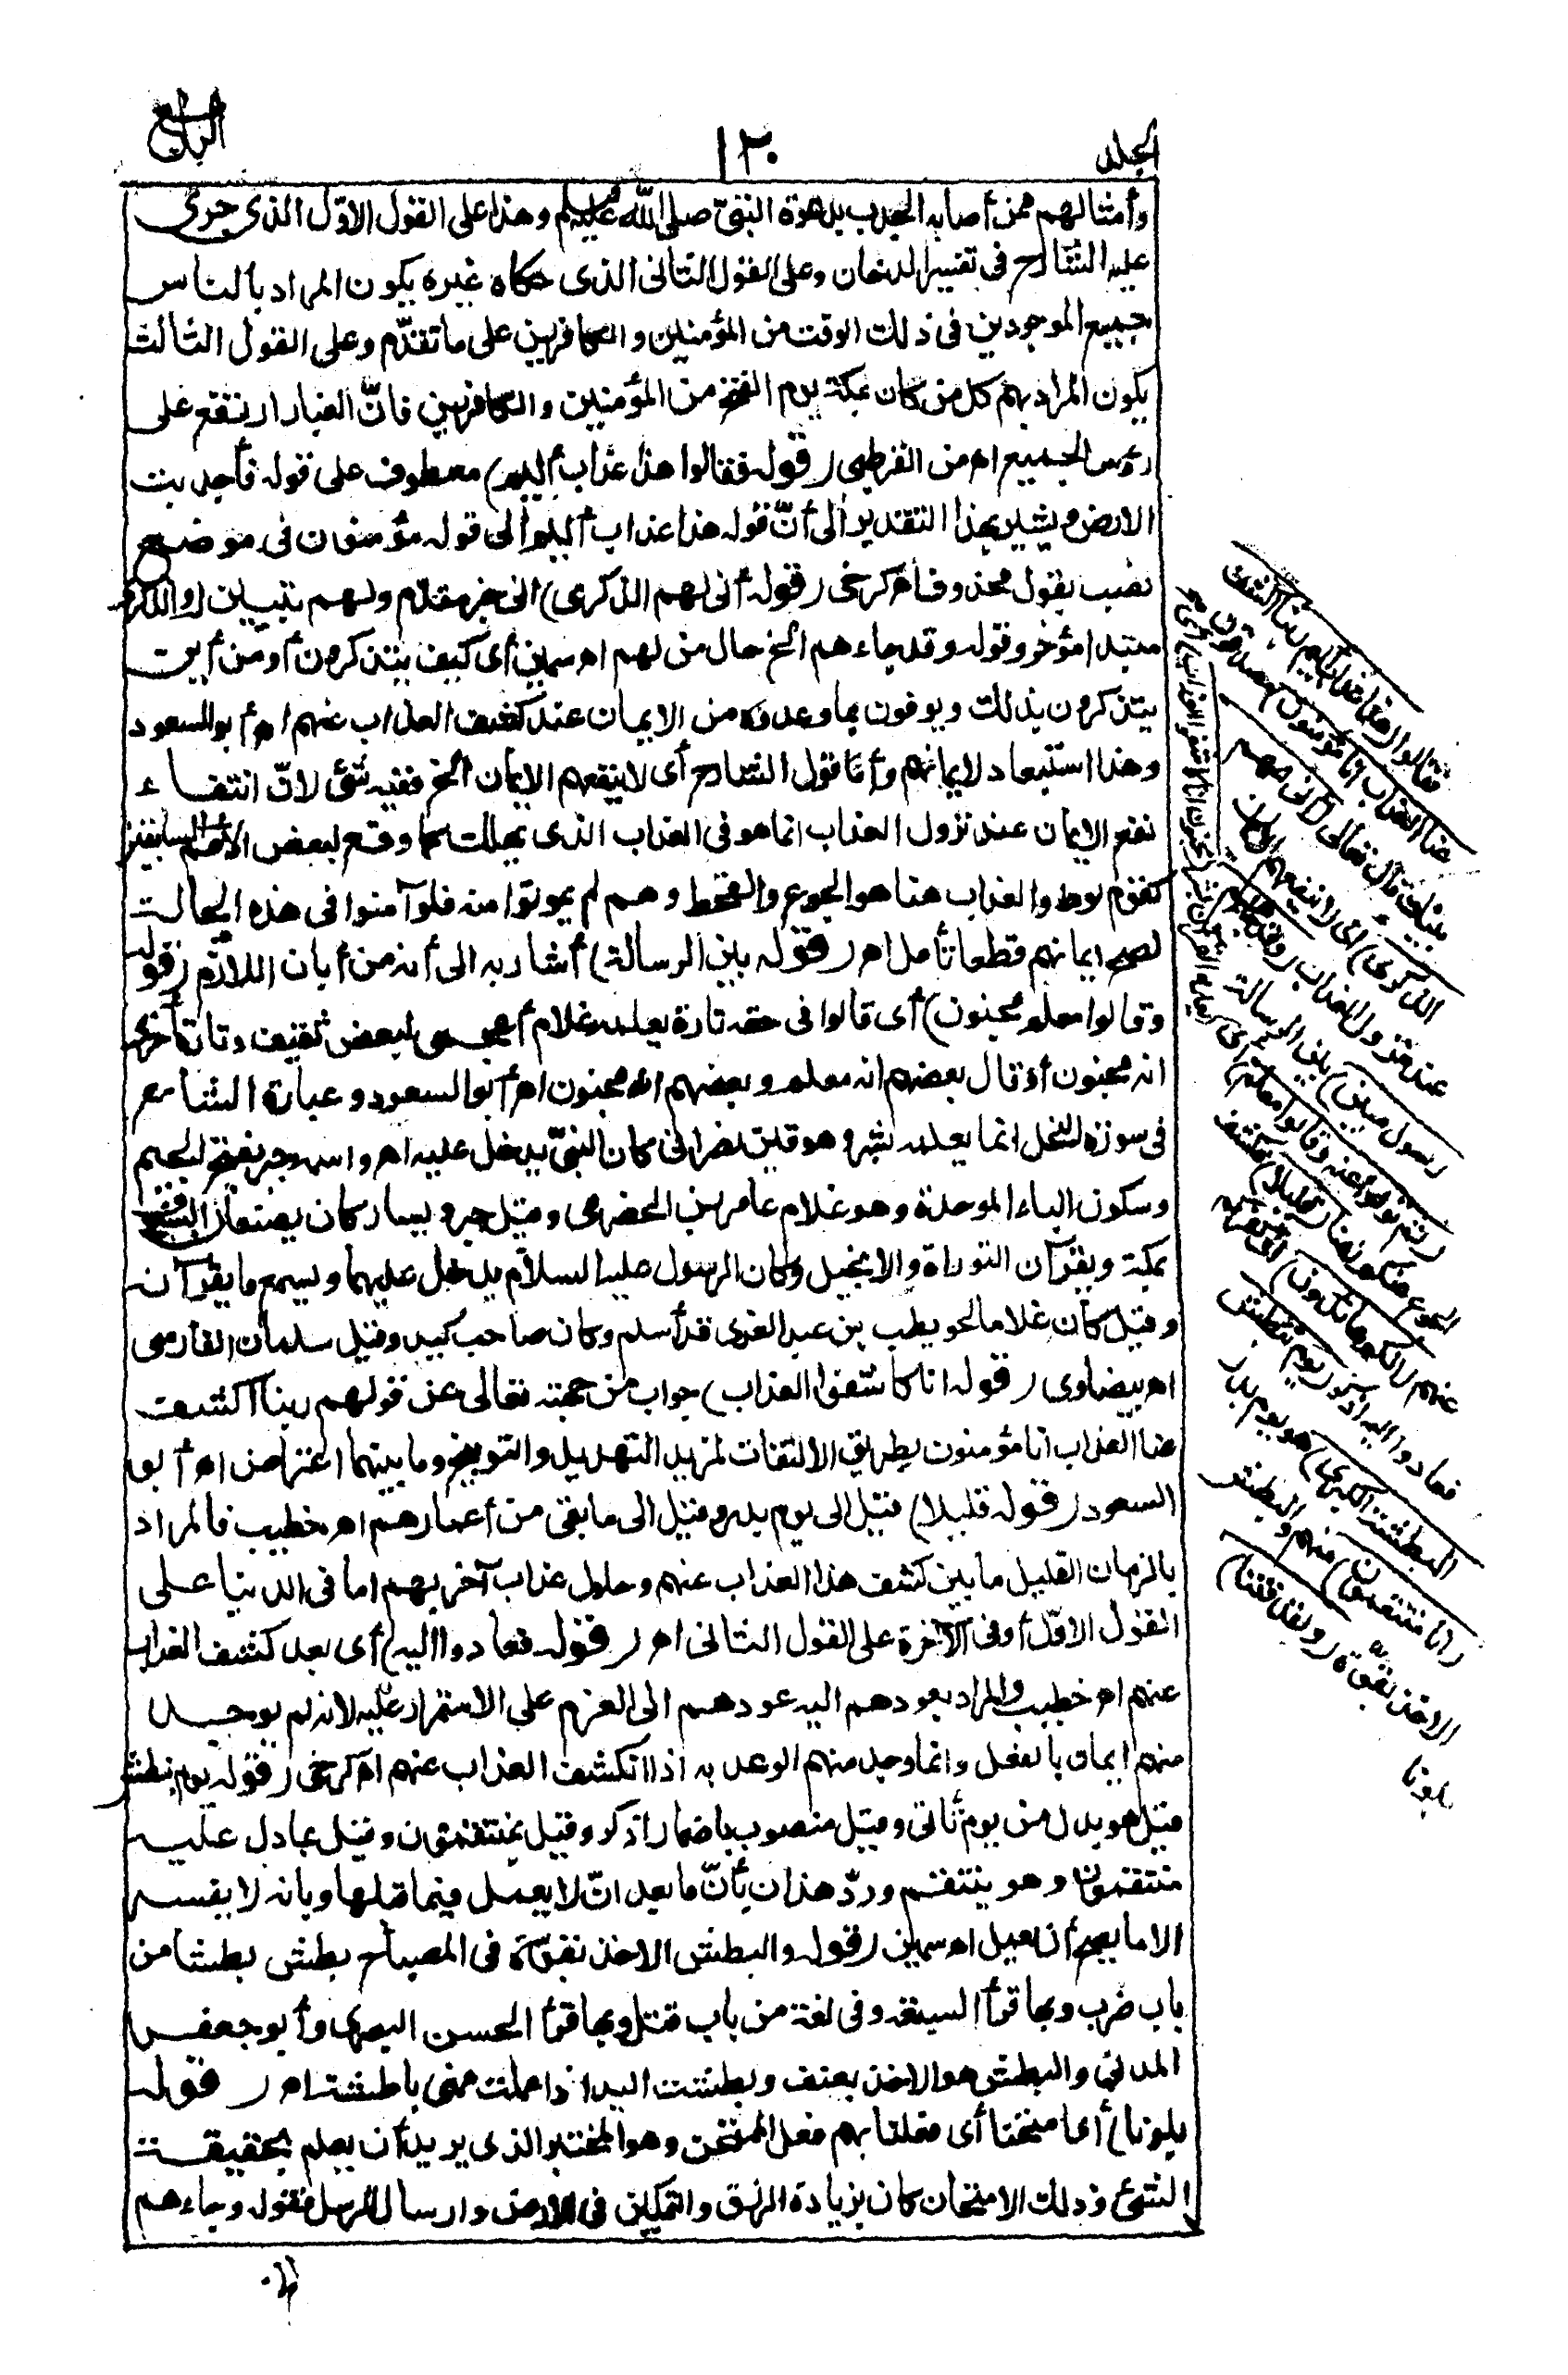 الجلد
١٢٠
الرابع
وأمثالهم ممن أصابه الجدب بدعوة النبيّ صلى الله عليه وسلم وهذا على القول الاوّل الذى جرى
عليه الشارح فى تفسير الدخان وعلى القول الثانى الذى حكاه غيره يكون المراد بالناس
جميع الموجودين فى ذلك الوقت من المؤمنين والكافرين على ما تقدّم وعلى القول الثالث
يكون المراد بهم كل من كان بمكة يوم الفتح من المؤمنين والكافرين فانّ الغبار ارتفع على
رؤس الجميع اه من القرطبى (قوله فقالوا هذا عذاب أليم) معطوف على قوله فأجدبت
الارض ويشير بهذا التقدير الى أنّ قوله هذا عذاب أليم الى قوله مؤمنون فى موضع
نصب بقول محذوف اه كرخى (قوله أنى لهم الذكرى) أنى خبر مقدّم ولهم تبيين (والذكرى
مبتدا مؤخر وقوله وقد جاءهم الخ حال من لهم اه سمين أى كيف يتذكرون أو من أين
يتذكرون بذلك ويوفون بما وعدوه من الايمان عند كشف العذاب عنهم اه أبو السعود
وهذا استبعاد لايمانهم وأما قول الشارح أى لا ينفعهم الايمان الخ ففيه شئ لانّ انتفاء
نفع الايمان عند نزول العذاب انما هو فى العذاب الذى يهلك كما وقع لبعض الامم السابقين
كقوم لوط والعذاب هنا هو الجوع والقحط وهم لم يموتوا منه فلو آمنوا فى هذه الحالة
لصح ايمانهم قطعا تأمل اه (قوله بين الرسالة) أشار به الى أنه من أبان اللازم (قوله
وقالوا معلم مجنون) أى قالوا فى حقه تارة يعلمه غلام أعجمى لبعض ثقيف وتارة أخرى
انه مجنون أو قال بعضهم انه معلم وبعضهم انه مجنون اه أبو السعود وعبارة الشارح
فى سورة النحل انما يعلمه بشر وهو قين نصرانى كان النبىّ يدخل عليه اه واسمه جبر بفتح الجيم
وسكون الباء الموحدة وهو غلام عامر بن الحضرمى وقيل جبر ويسار كان يصنعان السيوف
بمكة ويقرآن التوراة والانجيل وكان الرسول عليه السلام يدخل عليهما ويسمع ما يقرآنه
وقيل كان غلاما لحويطب بن عبد العزى قد أسلم وكان صاحب كتب وقيل سلمان الفارسى
اه بيضاوى (قوله انا كاشفوا العذاب) جواب من جهته تعالى عن قولهم ربنا اكشف
عنا العذاب انا مؤمنون بطريق الالتفات لمزيد التهديد والتوبيخ وما بينهما اعتراض اه أبو
السعود (قوله قليلا) قيل الى يوم بدر وقيل الى ما بقى من أعمارهم اه خطيب فالمراد
بالزمان القليل ما بين كشف هذا العذاب عنهم وحلول عذاب آخر بهم اما فى الدنيا على
القول الاوّل أو فى الآخرة على القول الثانى اه (قوله فعادوا اليه) أى بعد كشف العذاب
عنهم اه خطيب والمراد بعودهم اليه عودهم الى العزم على الاستمرار عليه لانه لم يوجد
منهم ايمان بالفعل وانما وجد منهم الوعد به اذا انكشف العذاب عنهم اه كرخى (قوله يوم نبطش
قيل هو بدل من يوم تأتى وقيل منصوب باضمار اذكر وقيل بمنتقمون وقيل بما دل عليه
منتقمون وهو ينتقم وردّ هذان بأنّ ما بعد انّ لا يعمل فيما قبلها وبانه لا يفسر
الا ما يصح أن يعمل اه سمين (قوله والبطش الاخذ بقوّة) فى المصباح بطش بطشا من
باب ضرب وبها قرأ السبعة وفى لغة من باب قتل وبها قرأ الحسن البصرى وأبو جعفر
المدنى والبطش هو الاخذ بعنف وبطشت اليد اذا عملت فهى باطشة اه (قوله
بلونا) أى امتحنا أى فعلنا بهم فعل الممتحن وهو المختبر الذى يريد أن يعلم بحقيقة
الشئ وذلك الامتحان كان بزيادة الرزق والتمكين فى الارض وارسال الرسل فقوله وجاءهم
فقالوا (هذا عذاب أليم ربنا اكشف
عنا العذاب انا مؤمنون) مصدقون
بنبيك قال تعالى (أنى لهم
الذكرى) أى لا ينفعهم الايمان
عند نزول العذاب (وقد جاءهم
رسول مبين) بين الرسالة
(ثم تولوا عنه وقالوا معلم) أى يعلمه القرآن بشر (مجنون انا كاشفوا العذاب) أى
الجوع عنكم زمنا (قليلا) فكشف
عنهم (انكم عائدون) الى كفركم
فعادوا اليه اذكر (يوم نبطش
البطشة الكبرى) هو يوم بدر
(انا منتقمون) منهم والبطش
الاخذ بقوّة (ولقد فتنا)
بلونا